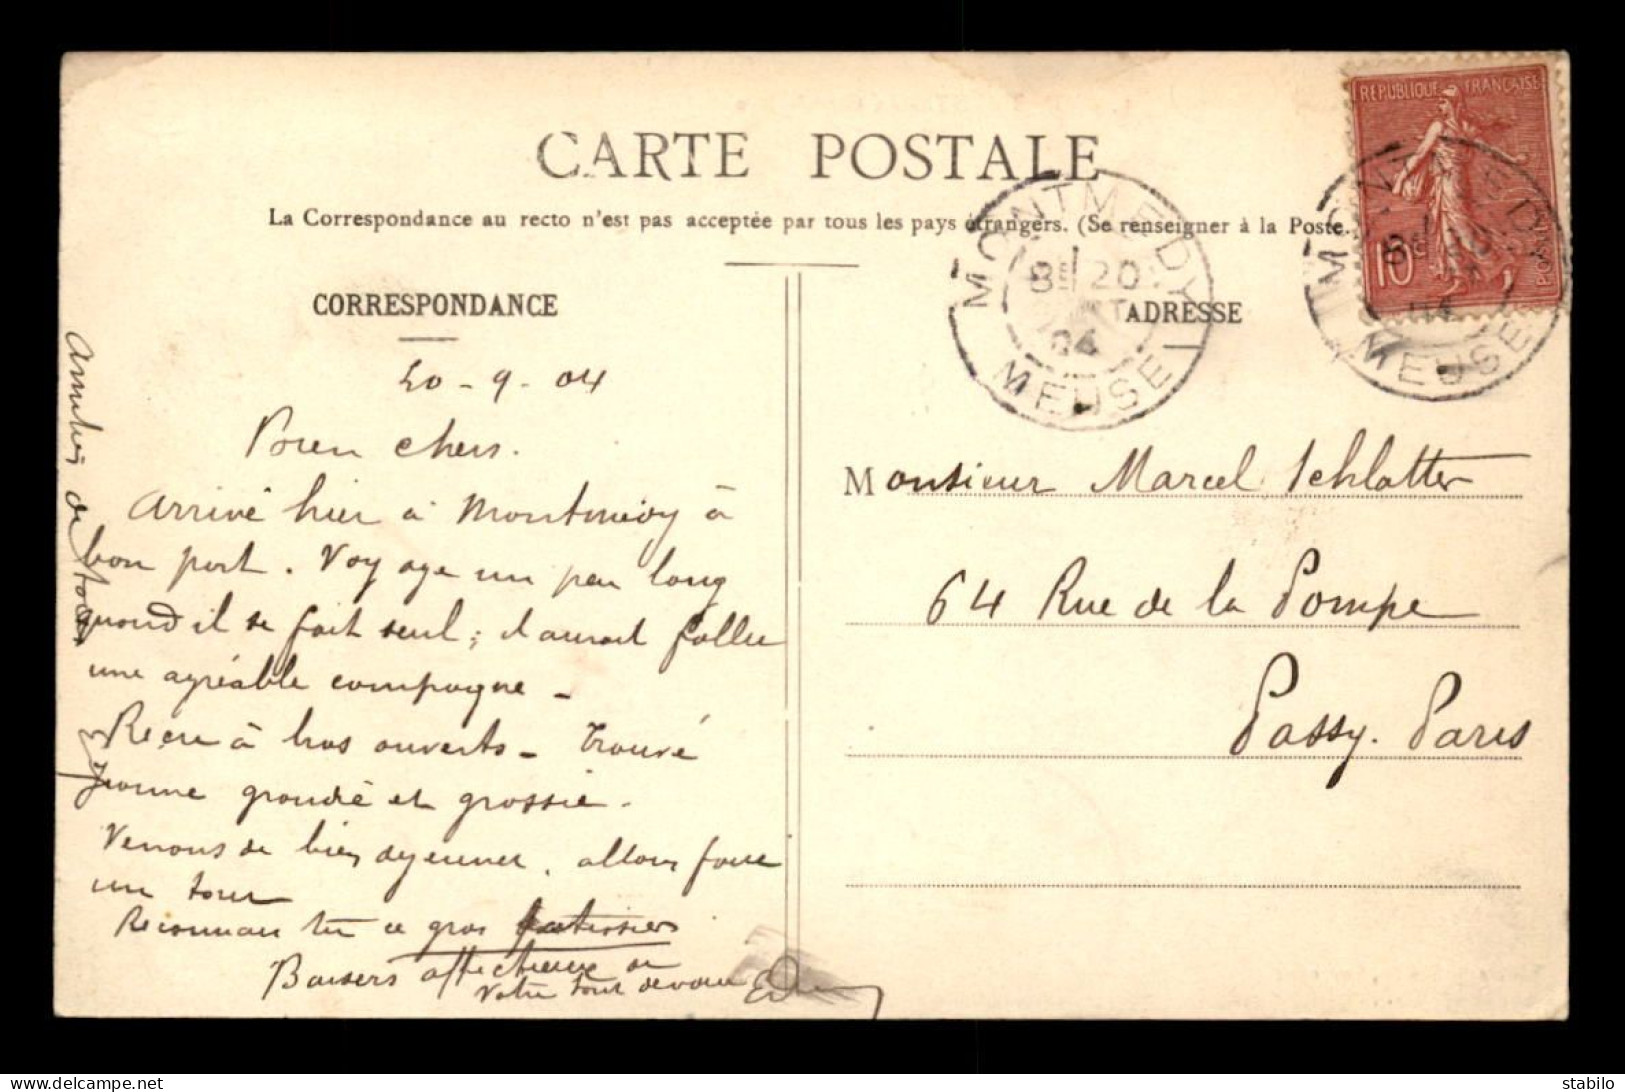 CARTE POSTALE
La Correspondance au recto n'est pas acceptée par tous les pays étrangers. (Se renseigner à la Poste.
CORRESPONDANCE
20 - 9 - 04
Bien chers.
Arrivé hier à Montmédy à
bon port. Voyage un peu long
quand il se fait seul; il aurait fallu
une agréable compagne -
Reçu à bras ouverts - Trouvé
grandie et grossie.
Venons de bien dejeuner, allons faire
un tour
Reconnais tu ce gros patissier
Baisers affectueux de
Votre tout dévoué
Amitiés de tous
ADRESSE
Monsieur Marcel Schlatter
64 Rue de la Pompe
Passy. Paris
REPUBLIQUE FRANÇAISE
10
POSTES
MONTMEDY
8E 20
04
MEUSE
MONTMEDY
8E
04
MEUSE
stabilo